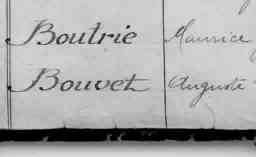 Boutrie Maurice
Bouvet Auguste